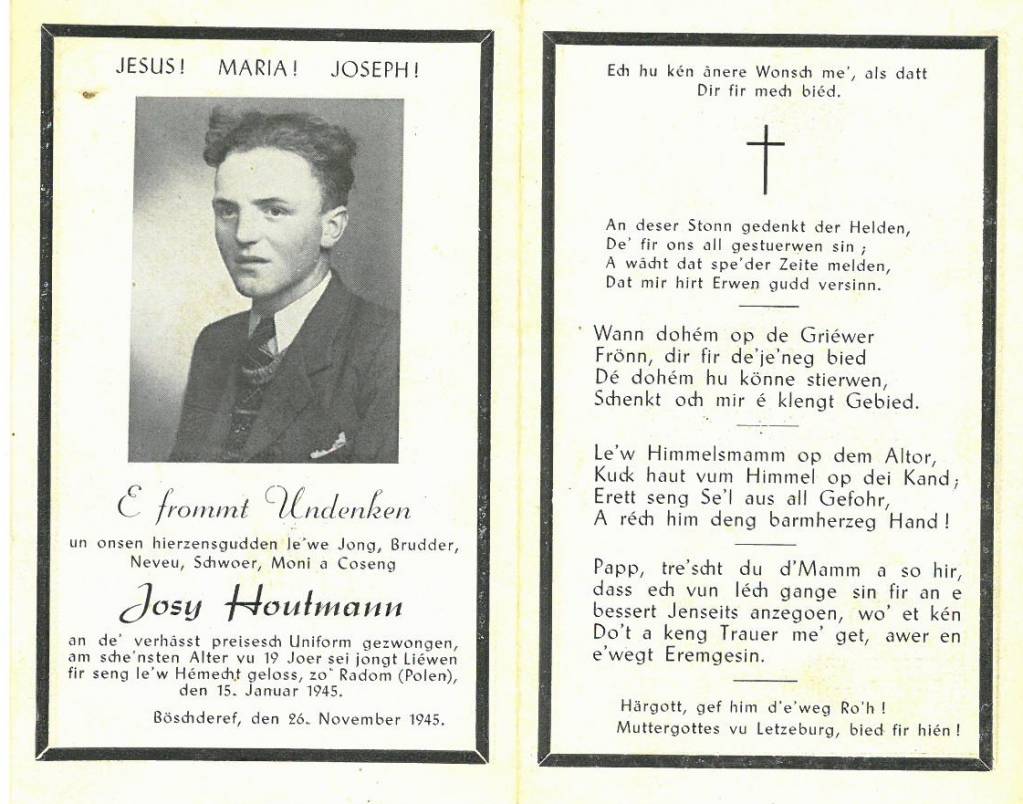 JESUS! MARIA! JOSEPH!
E frommt Undenken
un onsen hierzensgudden le'we Jong, Brudder,
Neveu, Schwoer, Moni a Coseng
Josy Houtmann
an de' verhâsst preisesch Uniform gezwongen,
am sche'nsten Alter vu 19 Joer sei jongt Liéwen
fir seng le'w Hémecht geloss, zo' Radom (Polen),
den 15. Januar 1945.
Böschderef, den 26. November 1945.
Ech hu kén ânere Wonsch me', als datt
Dir fir mech biéd.
An deser Stonn gedenkt der Helden,
De' fir ons all gestuerwen sin ;
A wâcht dat spe'der Zeite melden,
Dat mir hirt Erwen gudd versinn.
Wann dohém op de Griéwer
Frönn, dir fir de'je'neg bied
Dé dohém hu könne stierwen,
Schenkt och mir é klengt Gebied.
Le'w Himmelsmamm op dem Altor,
Kuck haut vum Himmel op dei Kand;
Erett seng Se'l aus all Gefohr,
A réch him deng barmherzeg Hand !
Papp, tre'scht du d'Mamm a so hir,
dass ech vun léch gange sin fir an e
bessert Jenseits anzegoen, wo' et kén
Do't a keng Trauer me' get, awer en
e'wegt Eremgesin.
Härgott, gef him d'e'weg Ro'h !
Muttergottes vu Letzeburg, bied fir hién !